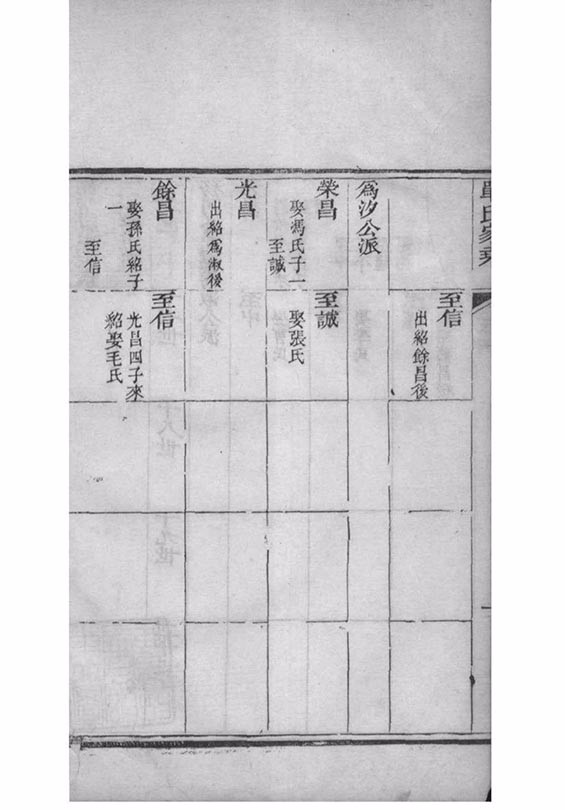 單氏家乘
至信
出紹餘昌後
爲汐公派
榮昌
娶馮氏子一
至誠
至誠
娶張氏
光昌
出紹爲淑後
餘昌
娶孫氏紹子
一
至信
至信
光昌四子來
紹娶毛氏